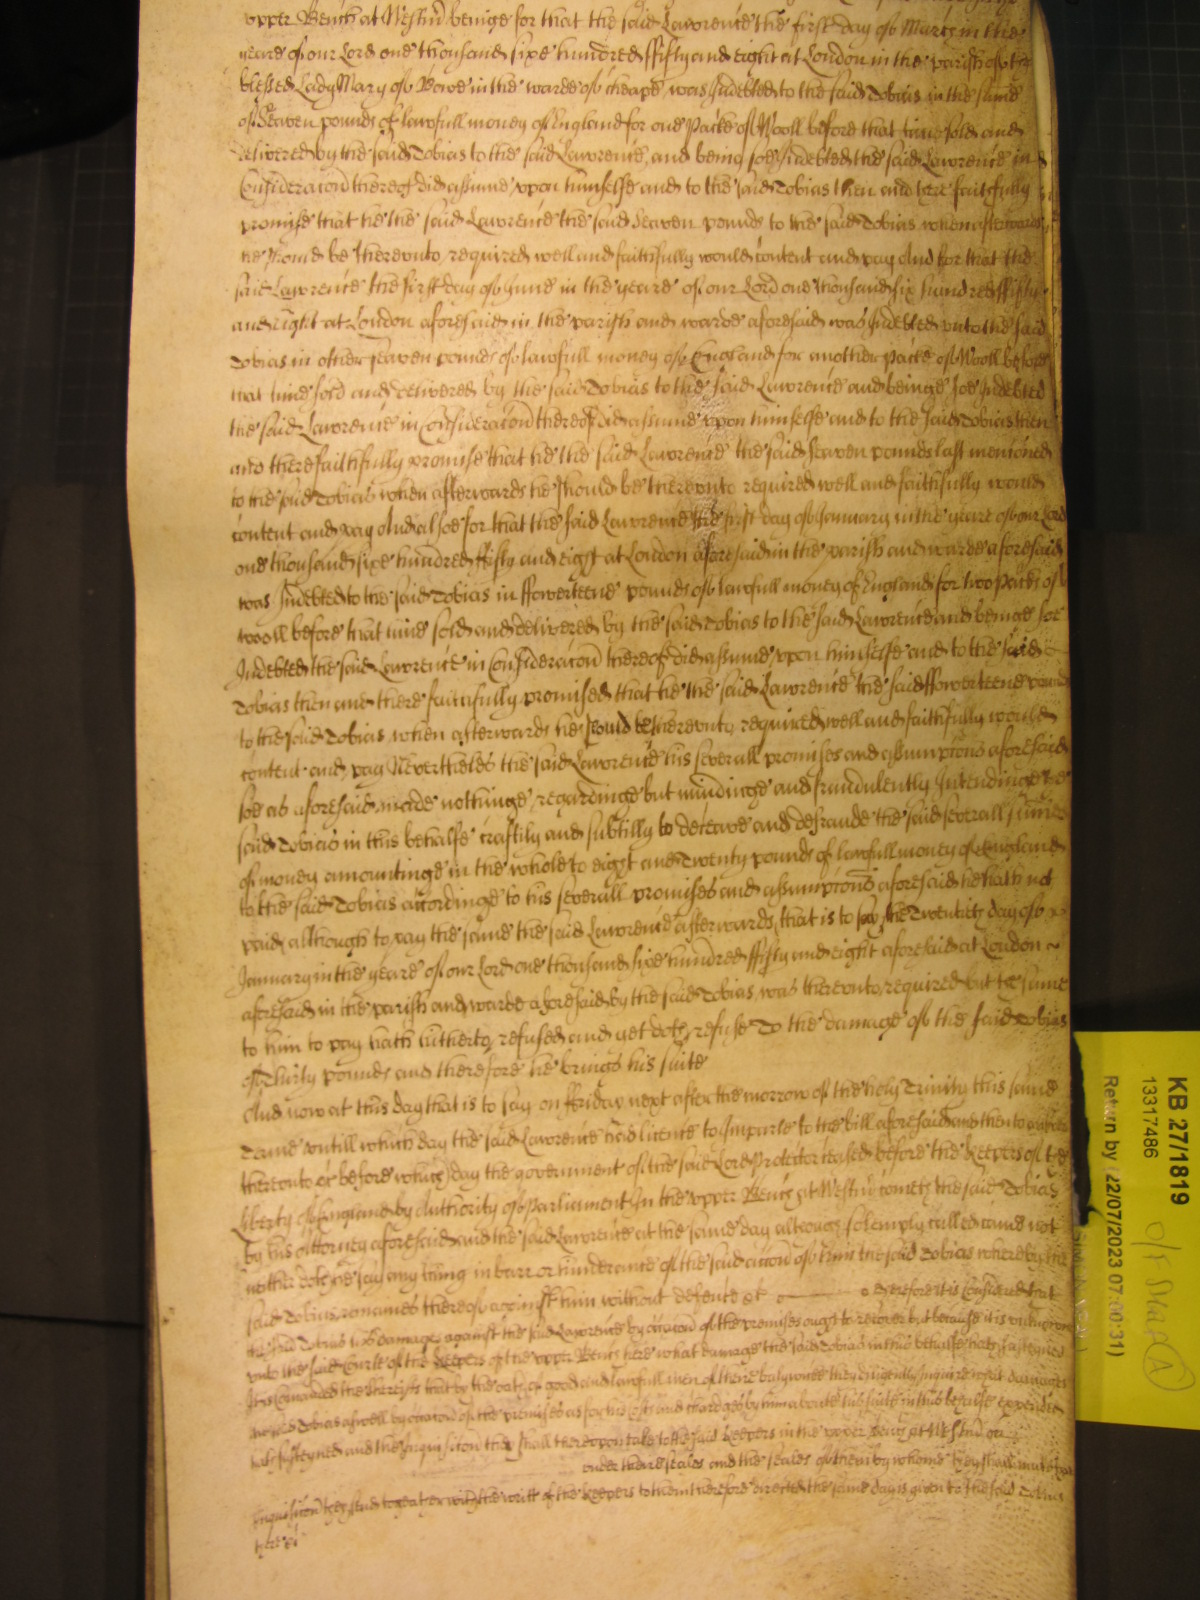 upper Bench at Westm̃ beinge for that the said Lawrence the first day of March in the
yeare of our Lord one thousand sixe hundred ffifty and eight at London in the parish of the
blessed Lady Mary of Bowe in the warde of cheape was Indebted to the said Tobias in the sume
of Seaven pounds of lawfull money of England for one Packe of Wooll before that time sold and
delivered by the said Tobias to the said Lawrence, and being soe Indebted the said Lawrence in
Consideracõn thereof did assume upon himselfe and to the said Tobias then and there faithfully
promise that he the said Lawrence the said Seaven pounds to the said Tobias when afterwards
he should be thereunto required well and faithfully would content and pay And for that the
said Lawrence the first day of June in the yeare of our Lord one thousand six hundred ffifty
and eight at London aforesaid in the parish and warde aforesaid was Indebted unto the said
Tobias in other seaven pounds of lawfull money of England for another packe of Wooll before
that time sold and delivered by the said Tobias to the said Lawrence and beinge soe Indebted
the said Lawrence in Consideracõn thereof did assume upon himselfe and to the said Tobias then
and there faithfully promise that he the said Lawrence the said seaven pounds last menc̃oned
to the said Tobias when afterwards he should be thereunto required well and faithfully would
content and pay And alsoe for that the said Lawrence the first day of January in the yeare of our Lord
one thousand sixe hundred ffifty and eight at London aforesaid in the parish and warde aforesaid
was Indebted to the said Tobias in ffowerteene pounds of lawfull money of England for two packs of
wooll before that time sold and delivered by the said Tobias to the said Lawrence and beinge soe
Indebted the said Lawrence in Consideracõn thereof did assume upon himselfe and to the said
Tobias then and there faithfully promised that he the said Lawrence the said ffowerteene pounds
to the said Tobias when afterwards he should be thereunto required well and faithfully would
content and pay Neverthelês the said Lawrence his severall promises and assumptions aforesaid
soe as aforesaid made nothinge regardinge but mindinge and fraudulently Intendinge the
said Tobias in this behalfe craftily and subtilly to deceave and defraude the said severall sumes
of money amountinge in the whole to eight and Twenty pounds of lawfull money of England
to the said Tobias accordinge to his severall promises and assumptions aforesaid he hath not
paid although to pay the same the said Lawrence afterwards, that is to say the Twentieth day of
January in the yeare of our Lord one thousand sixe hundred ffifty and eight aforesaid at London
aforesaid in the parish and warde aforesaid by the said Tobias was thereunto required but the same
to him to pay hath hitherto refused and yet doth refuse To the damage of the said Tobias
of Thirty pounds and therefore he brings his suite
And now at this day that is to say on ffriday next after the morrow of the holy Trinity this same
Terme untill which day the said Lawrence had licence to Imparle to the bill aforesaid and then to answer
thereunto &c before which day the government of the said Lord Protector ceased before the keepers of the
Liberty of England by Authority of Parliament In the upper Bench at Westm̃ cometh the said Tobias
by his Attorney aforesaid and the said Lawrence at the same day although solemply called came not
neither doth he say any thing in barr or hinderance of the said accõn of him the said Tobias whereby the
said Tobias remaines thereof against him without defence &c Therefore it is Considered that
the said Tobias his damages against the said Lawrence by occasion of the premises ought to recover but because it is unknown
unto the said Courte of the keepers of the upper Bench here what damage the said Tobias in this behalfe hath susteyned
It is Comanded the Sherriffs that by the oath of good and lawfull men of there baliwicke they diligently Inquire what damages
the said Tobias aswell by occasion of the premises as for his costs and chardges by him aboute his suite in this behalfe expended
hath susteyned and the Inquisicõn they shall thereupon take to the said keepers in the upper Bench at Westm̃ on
under theire seales and the seales of them by whome they shall make that
Inquisicõn they send togeather with the writt of the keepers to them therefore directed the same day is given to the said Tobias
there &c
KB 27/1819
13317486
Return by (22/07/2023 07:00:31)
O/F Staff (A)